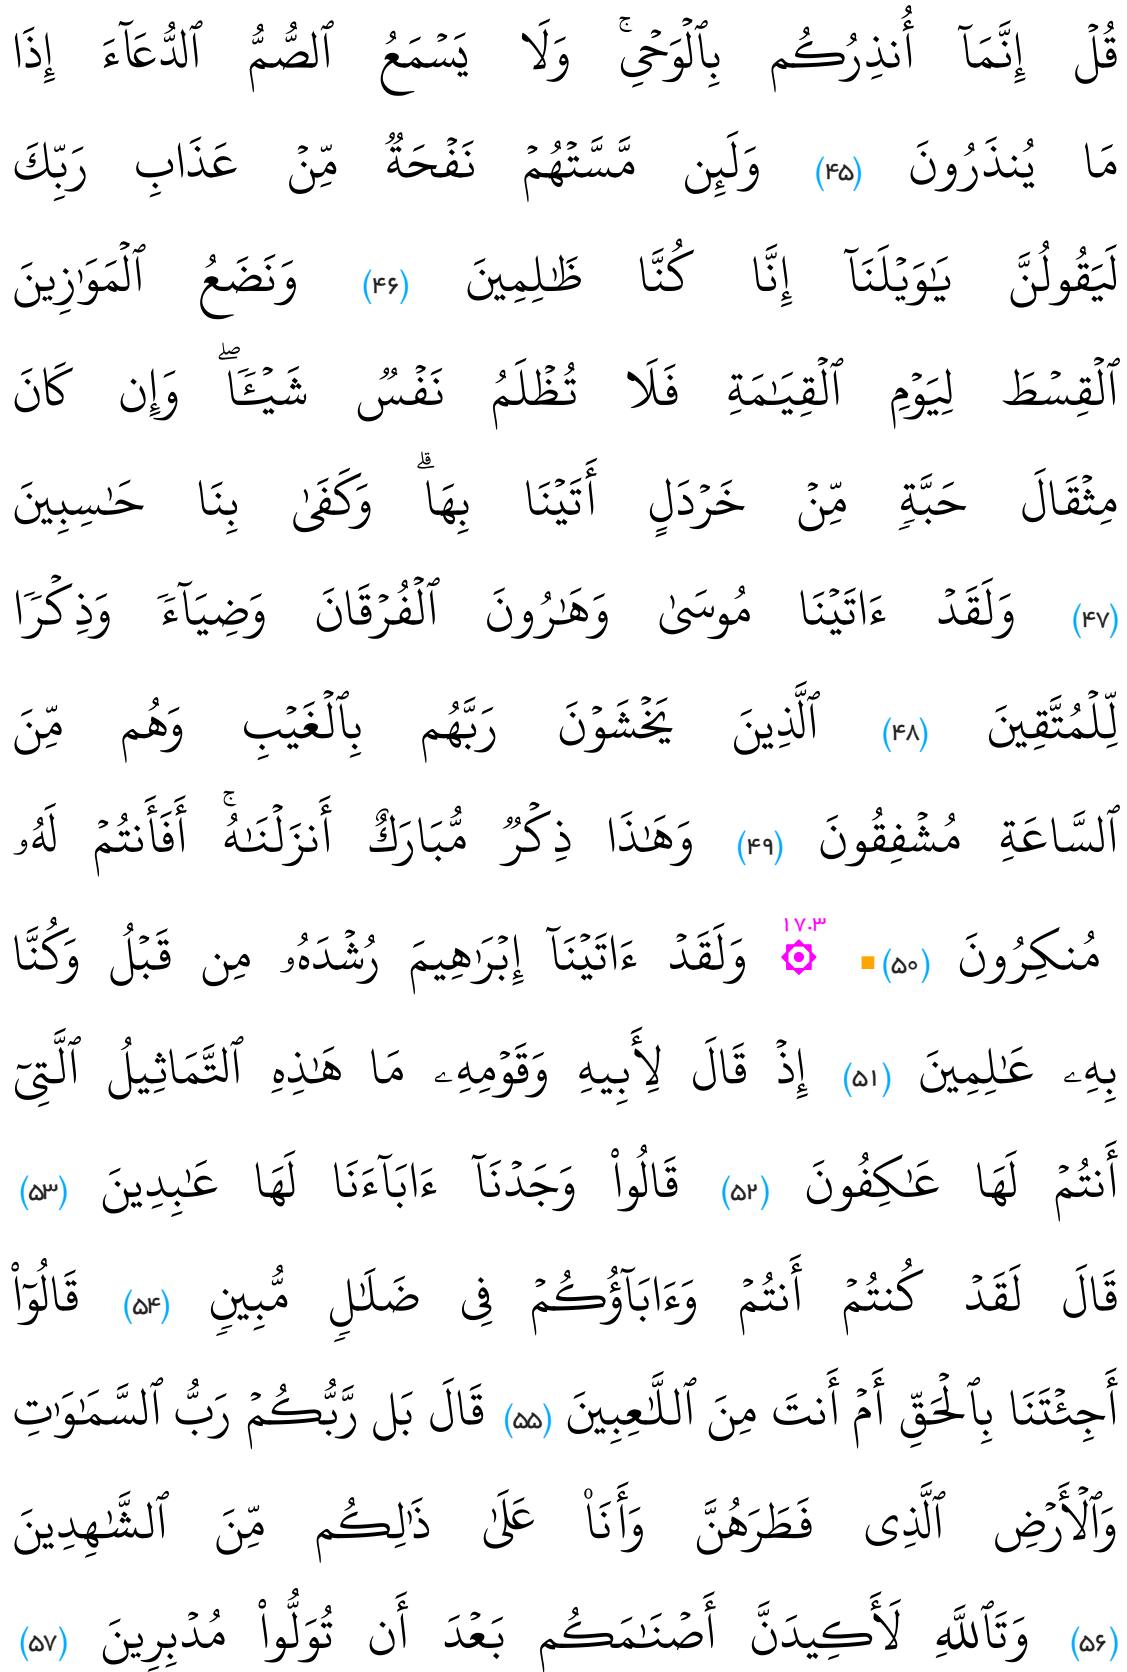 قُلۡ إِنَّمَآ أُنذِرُكُم بِٱلۡوَحۡيِۚ وَلَا يَسۡمَعُ ٱلصُّمُّ ٱلدُّعَآءَ إِذَا
مَا يُنذَرُونَ (۴۵) وَلَئِن مَّسَّتۡهُمۡ نَفۡحَةٞ مِّنۡ عَذَابِ رَبِّكَ
لَيَقُولُنَّ يَٰوَيۡلَنَآ إِنَّا كُنَّا ظَٰلِمِينَ (۴۶) وَنَضَعُ ٱلۡمَوَٰزِينَ
ٱلۡقِسۡطَ لِيَوۡمِ ٱلۡقِيَٰمَةِ فَلَا تُظۡلَمُ نَفۡسٞ شَيۡـٔٗاۖ وَإِن كَانَ
مِثۡقَالَ حَبَّةٖ مِّنۡ خَرۡدَلٍ أَتَيۡنَا بِهَاۗ وَكَفَىٰ بِنَا حَٰسِبِينَ
(۴۷) وَلَقَدۡ ءَاتَيۡنَا مُوسَىٰ وَهَٰرُونَ ٱلۡفُرۡقَانَ وَضِيَآءٗ وَذِكۡرٗا
لِّلۡمُتَّقِينَ (۴۸) ٱلَّذِينَ يَخۡشَوۡنَ رَبَّهُم بِٱلۡغَيۡبِ وَهُم مِّنَ
ٱلسَّاعَةِ مُشۡفِقُونَ (۴۹) وَهَٰذَا ذِكۡرٞ مُّبَارَكٌ أَنزَلۡنَٰهُۚ أَفَأَنتُمۡ لَهُۥ
مُنكِرُونَ (۵۰) ۱۷.۳ ۞ وَلَقَدۡ ءَاتَيۡنَآ إِبۡرَٰهِيمَ رُشۡدَهُۥ مِن قَبۡلُ وَكُنَّا
بِهِۦ عَٰلِمِينَ (۵۱) إِذۡ قَالَ لِأَبِيهِ وَقَوۡمِهِۦ مَا هَٰذِهِ ٱلتَّمَاثِيلُ ٱلَّتِيٓ
أَنتُمۡ لَهَا عَٰكِفُونَ (۵۲) قَالُواْ وَجَدۡنَآ ءَابَآءَنَا لَهَا عَٰبِدِينَ (۵۳)
قَالَ لَقَدۡ كُنتُمۡ أَنتُمۡ وَءَابَآؤُكُمۡ فِي ضَلَٰلٖ مُّبِينٖ (۵۴) قَالُوٓاْ
أَجِئۡتَنَا بِٱلۡحَقِّ أَمۡ أَنتَ مِنَ ٱللَّٰعِبِينَ (۵۵) قَالَ بَل رَّبُّكُمۡ رَبُّ ٱلسَّمَٰوَٰتِ
وَٱلۡأَرۡضِ ٱلَّذِي فَطَرَهُنَّ وَأَنَا۠ عَلَىٰ ذَٰلِكُم مِّنَ ٱلشَّٰهِدِينَ
(۵۶) وَتَٱللَّهِ لَأَكِيدَنَّ أَصۡنَٰمَكُم بَعۡدَ أَن تُوَلُّواْ مُدۡبِرِينَ (۵۷)